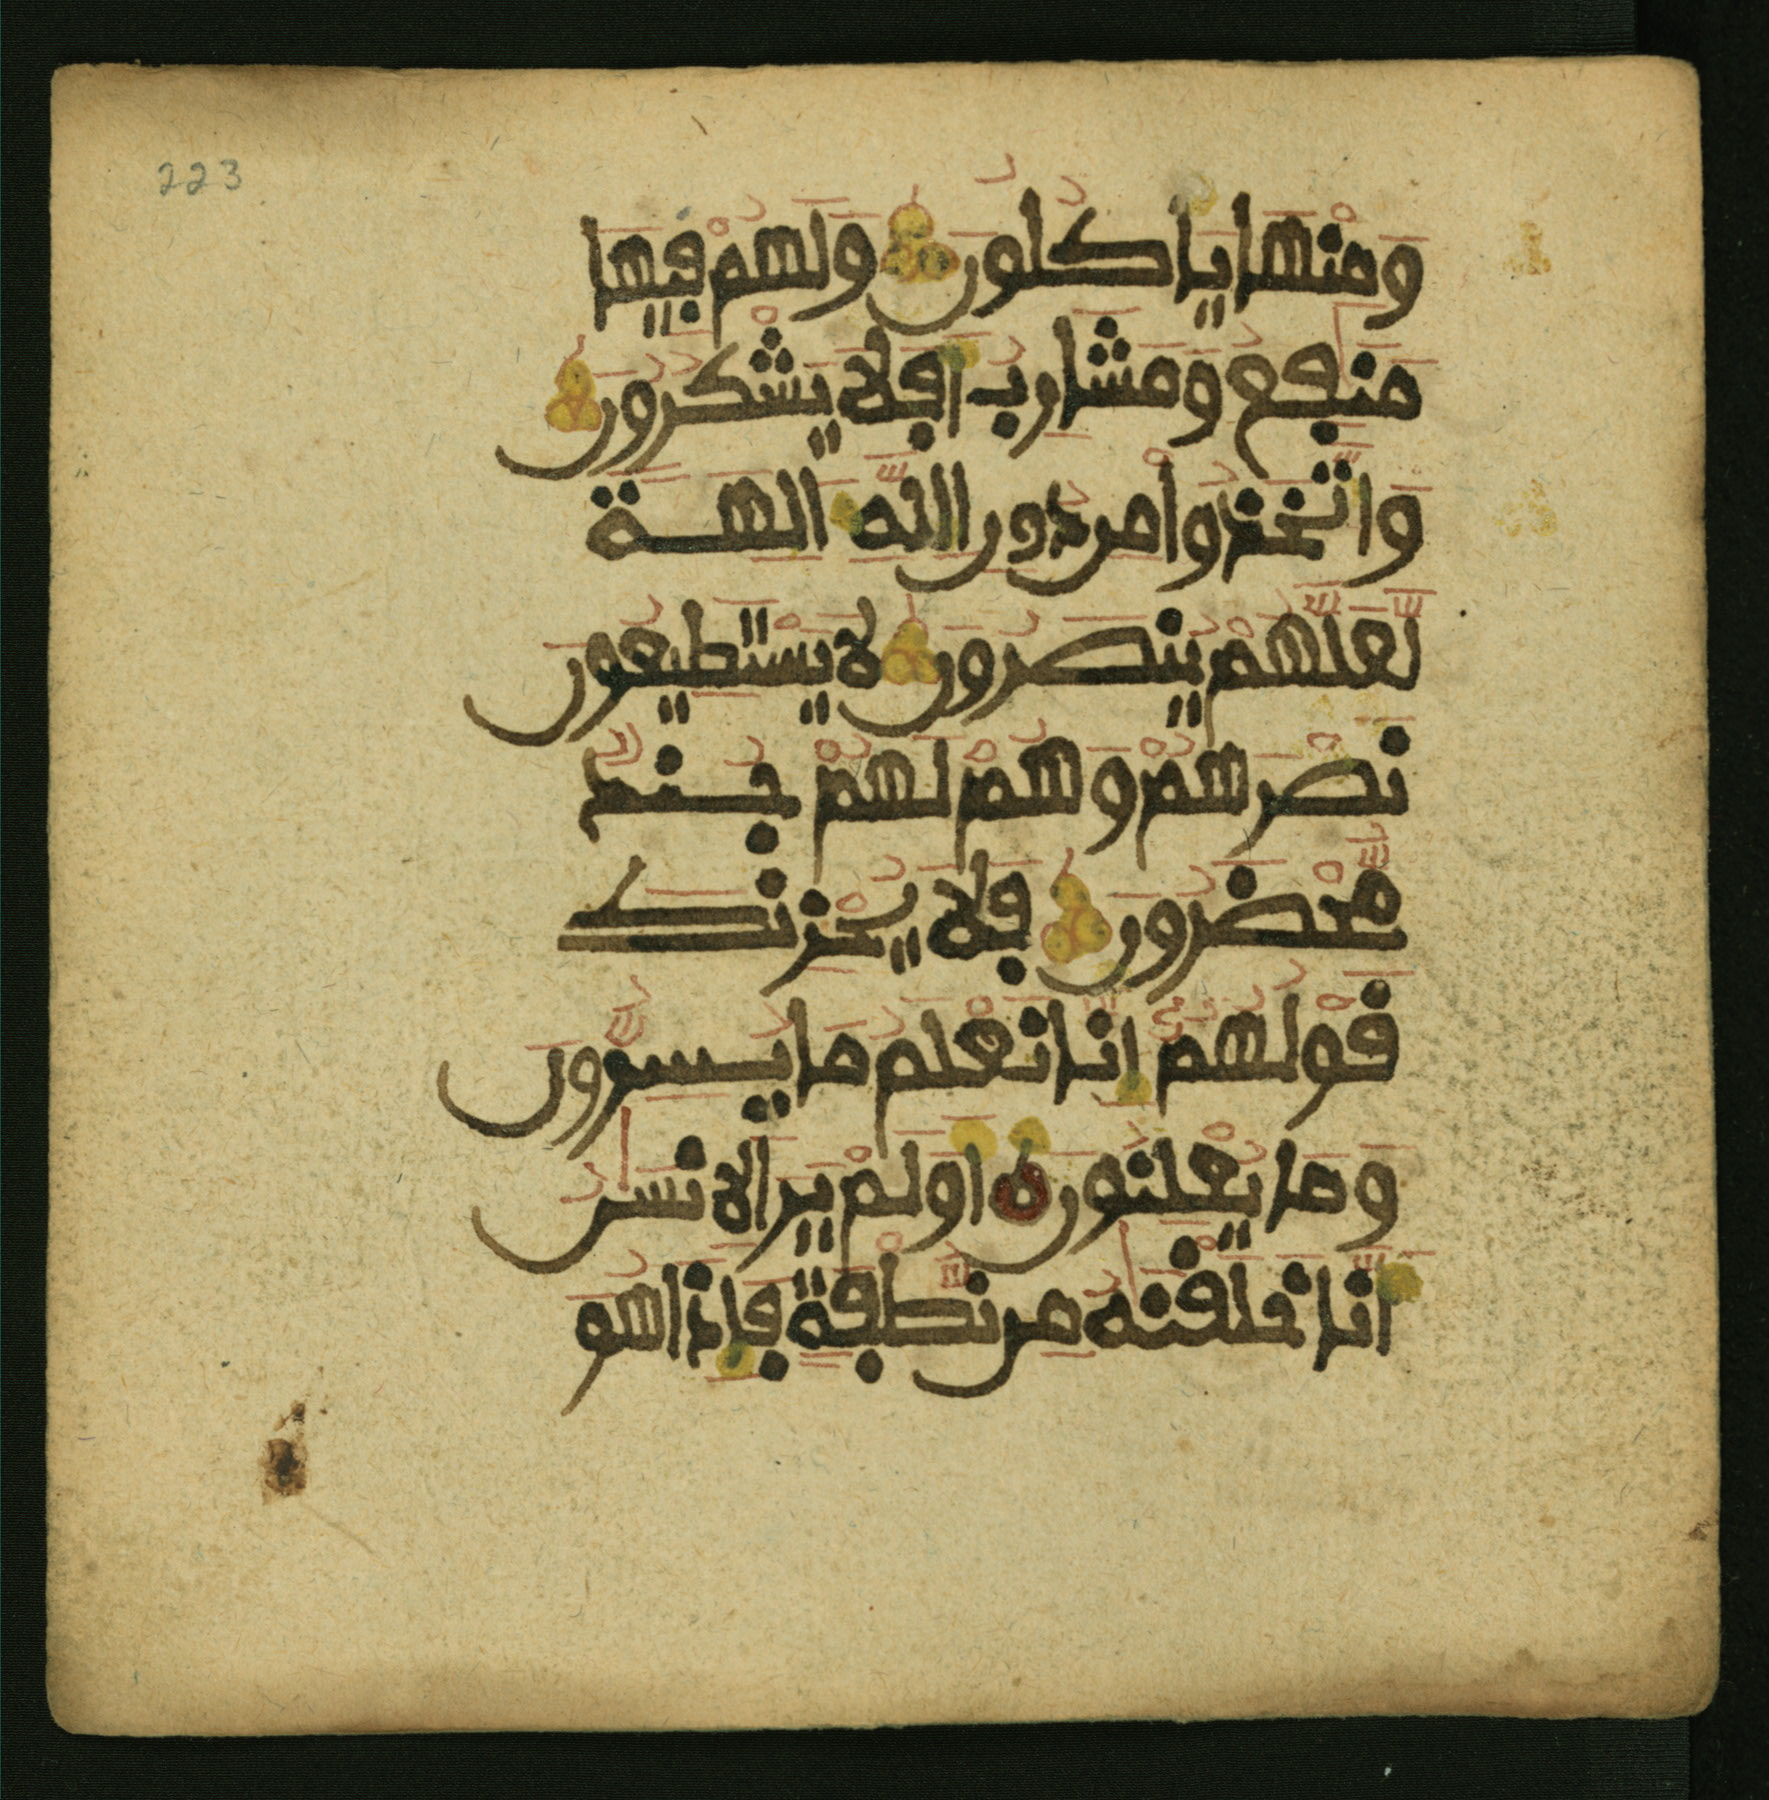 223
وَمِنْهَا يَاكُلُونَ وَلَهُمْ فِيهَا
مَنَٰفِعُ وَمَشَارِبُ أَفَلَا يَشْكُرُونَ
وَاتَّخَذُواْ مِن دُونِ اللَّهِ ءَالِهَةً
لَّعَلَّهُمْ يُنصَرُونَ لَا يَسْتَطِيعُونَ
نَصْرَهُمْ وَهُمْ لَهُمْ جُندٌ
مُّحْضَرُونَ فَلَا يُحْزِنكَ
قَوْلُهُمُ إِنَّا نَعْلَمُ مَا يُسِرُّونَ
وَمَا يُعْلِنُونَ ه أَوَلَمْ يَرَ الِانسَٰنُ
أَنَّا خَلَقْنَٰهُ مِن نُّطْفَةٍ فَإِذَا هُوَ